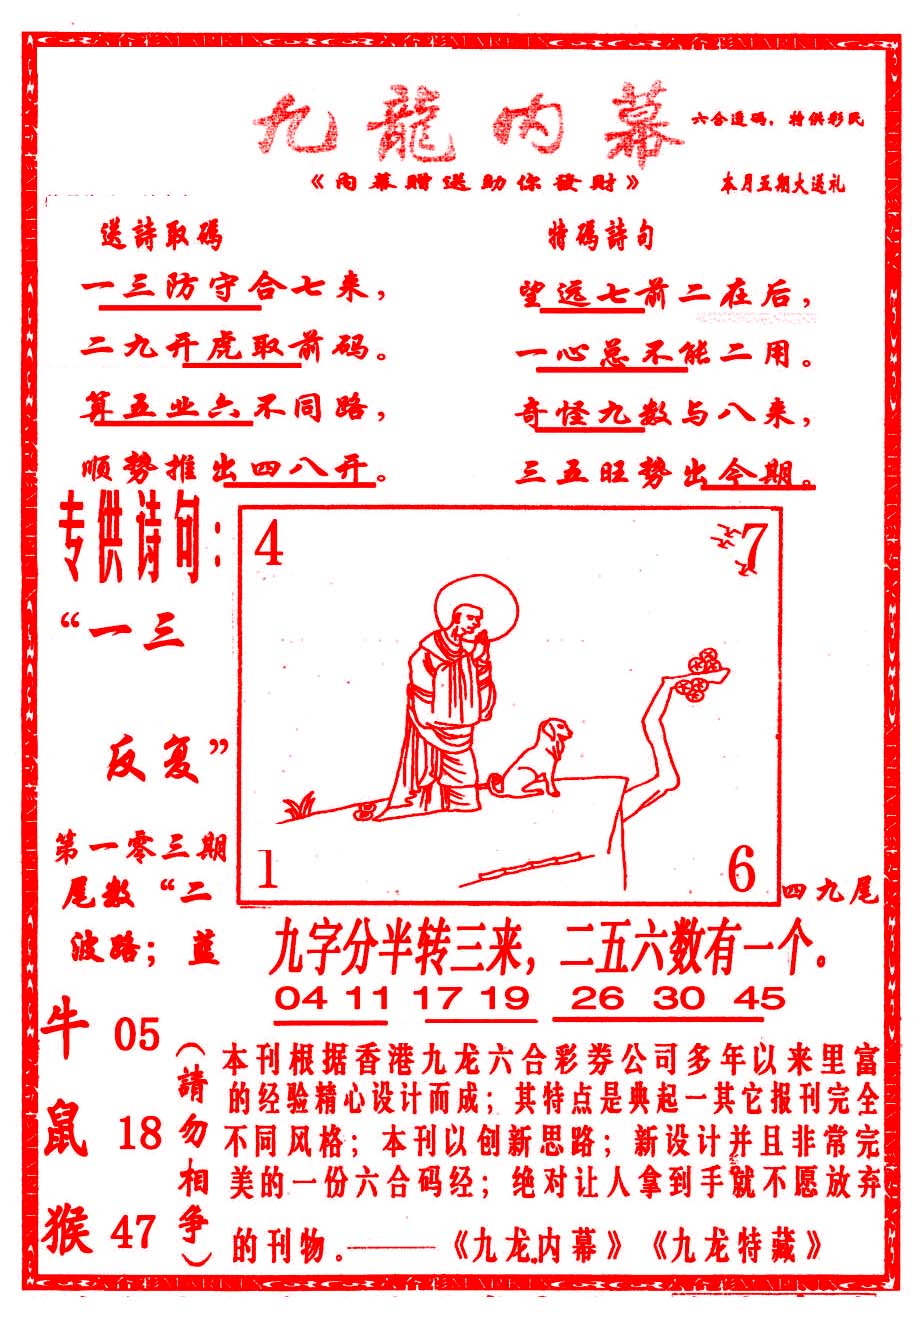 九龍内幕
六合透码，特供彩民
《内幕赠送助你發財》
本月五期大送礼
送詩取碼
一三防守合七来，
二九开虎取前码。
算五业六不同路，
顺势推出四八开。
特碼詩句
望远七前二在后，
一心总不能二用。
奇怪九数与八来，
三五旺势出今期。
专供诗句：
“一三
反复”
第一零三期
尾数“二
波路；蓝
4
7
1
6
四九尾
九字分半转三来，二五六数有一个。
04 11 17 19 26 30 45
牛 05
鼠 18
猴 47
（請勿相争）
本刊根据香港九龙六合彩劵公司多年以来里富
的经验精心设计而成；其特点是典起一其它报刊完全
不同风格；本刊以创新思路；新设计并且非常完
美的一份六合码经；绝对让人拿到手就不愿放弃
的刊物。——《九龙内幕》《九龙特藏》